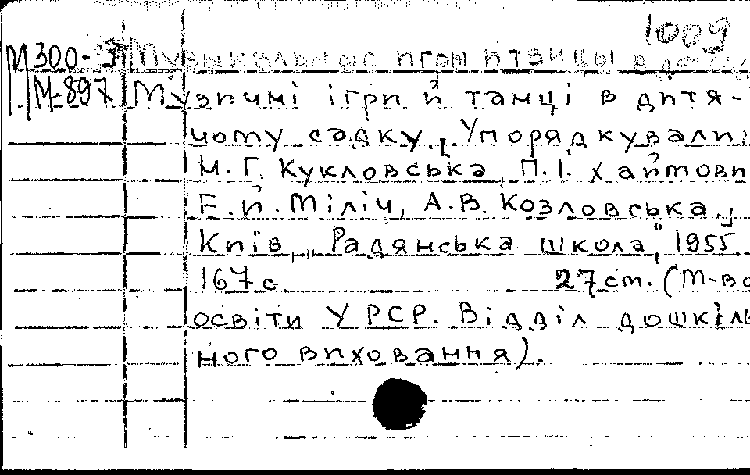 1009
М300-3
Музыкальные игры и танцы в де
М-897 Музичні ігри й танці в дитя-
чому садку. [Упорядкували:
М.Г. Кукловська, П.І. Хайтови
Е.й. Міліч, А.В. Козловська.]
Київ, „Радянська школа", 1955
167 с. 27 см. (М-во
освіти УРСР. Відділ дошкіль
ного виховання).